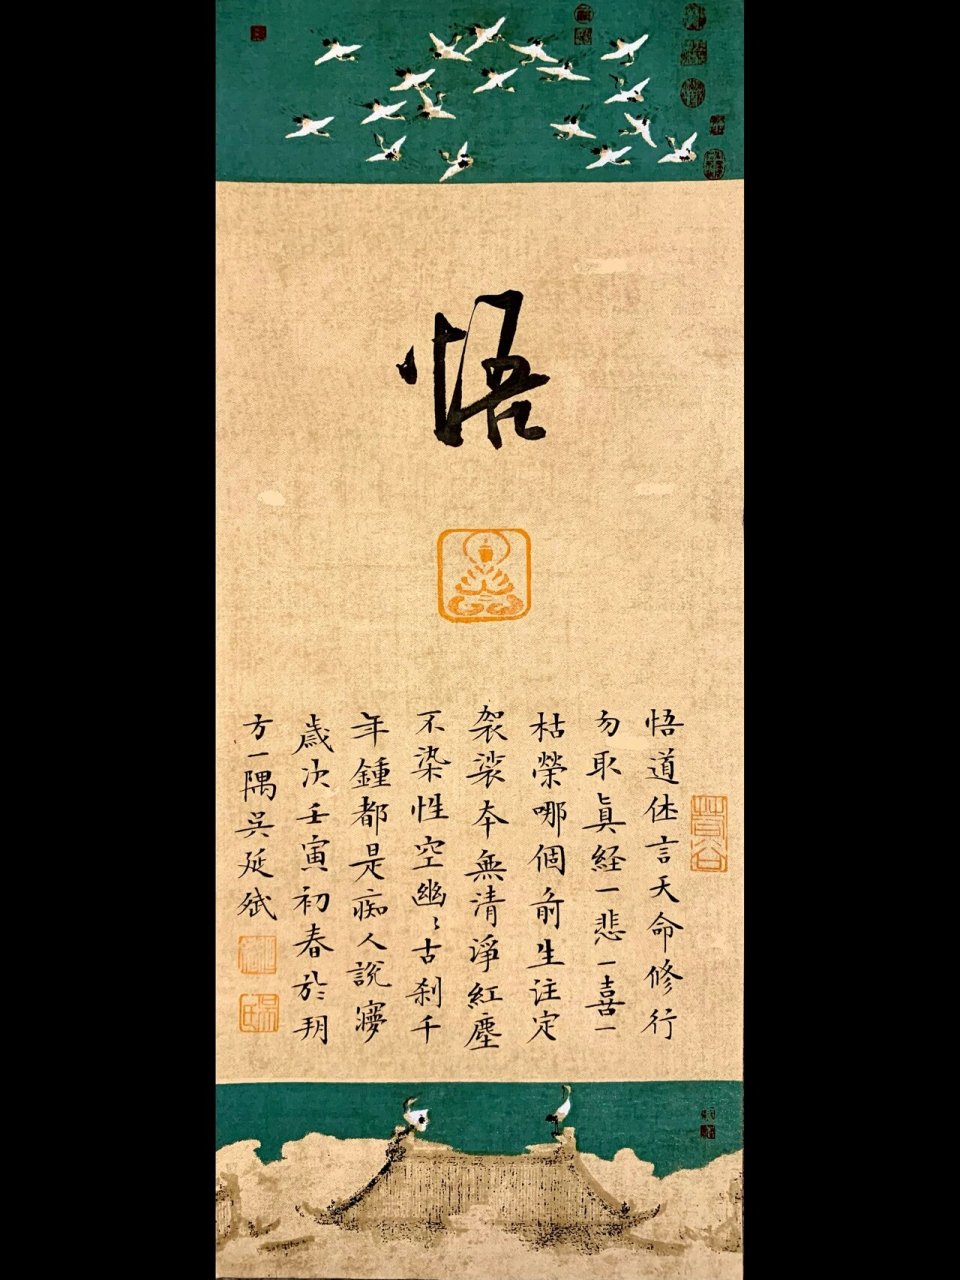 悟
悟道休言天命修行
勿取眞経一悲一喜一
枯榮哪個前生注定
袈裟本無清淨紅塵
不染性空幽〻古刹千
年鍾都是痴人說夢
歲次壬寅初春於玥
方一隅吴延斌